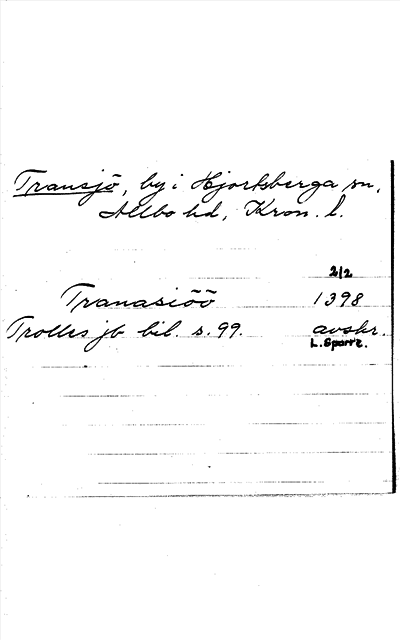 Transjö, by i Hjortsberga sn,
Allbo hd, Kron. l.
2/2
Tranasiöö 1398
Trolles jb bil. s. 99. avskr.
L. Sparr2.